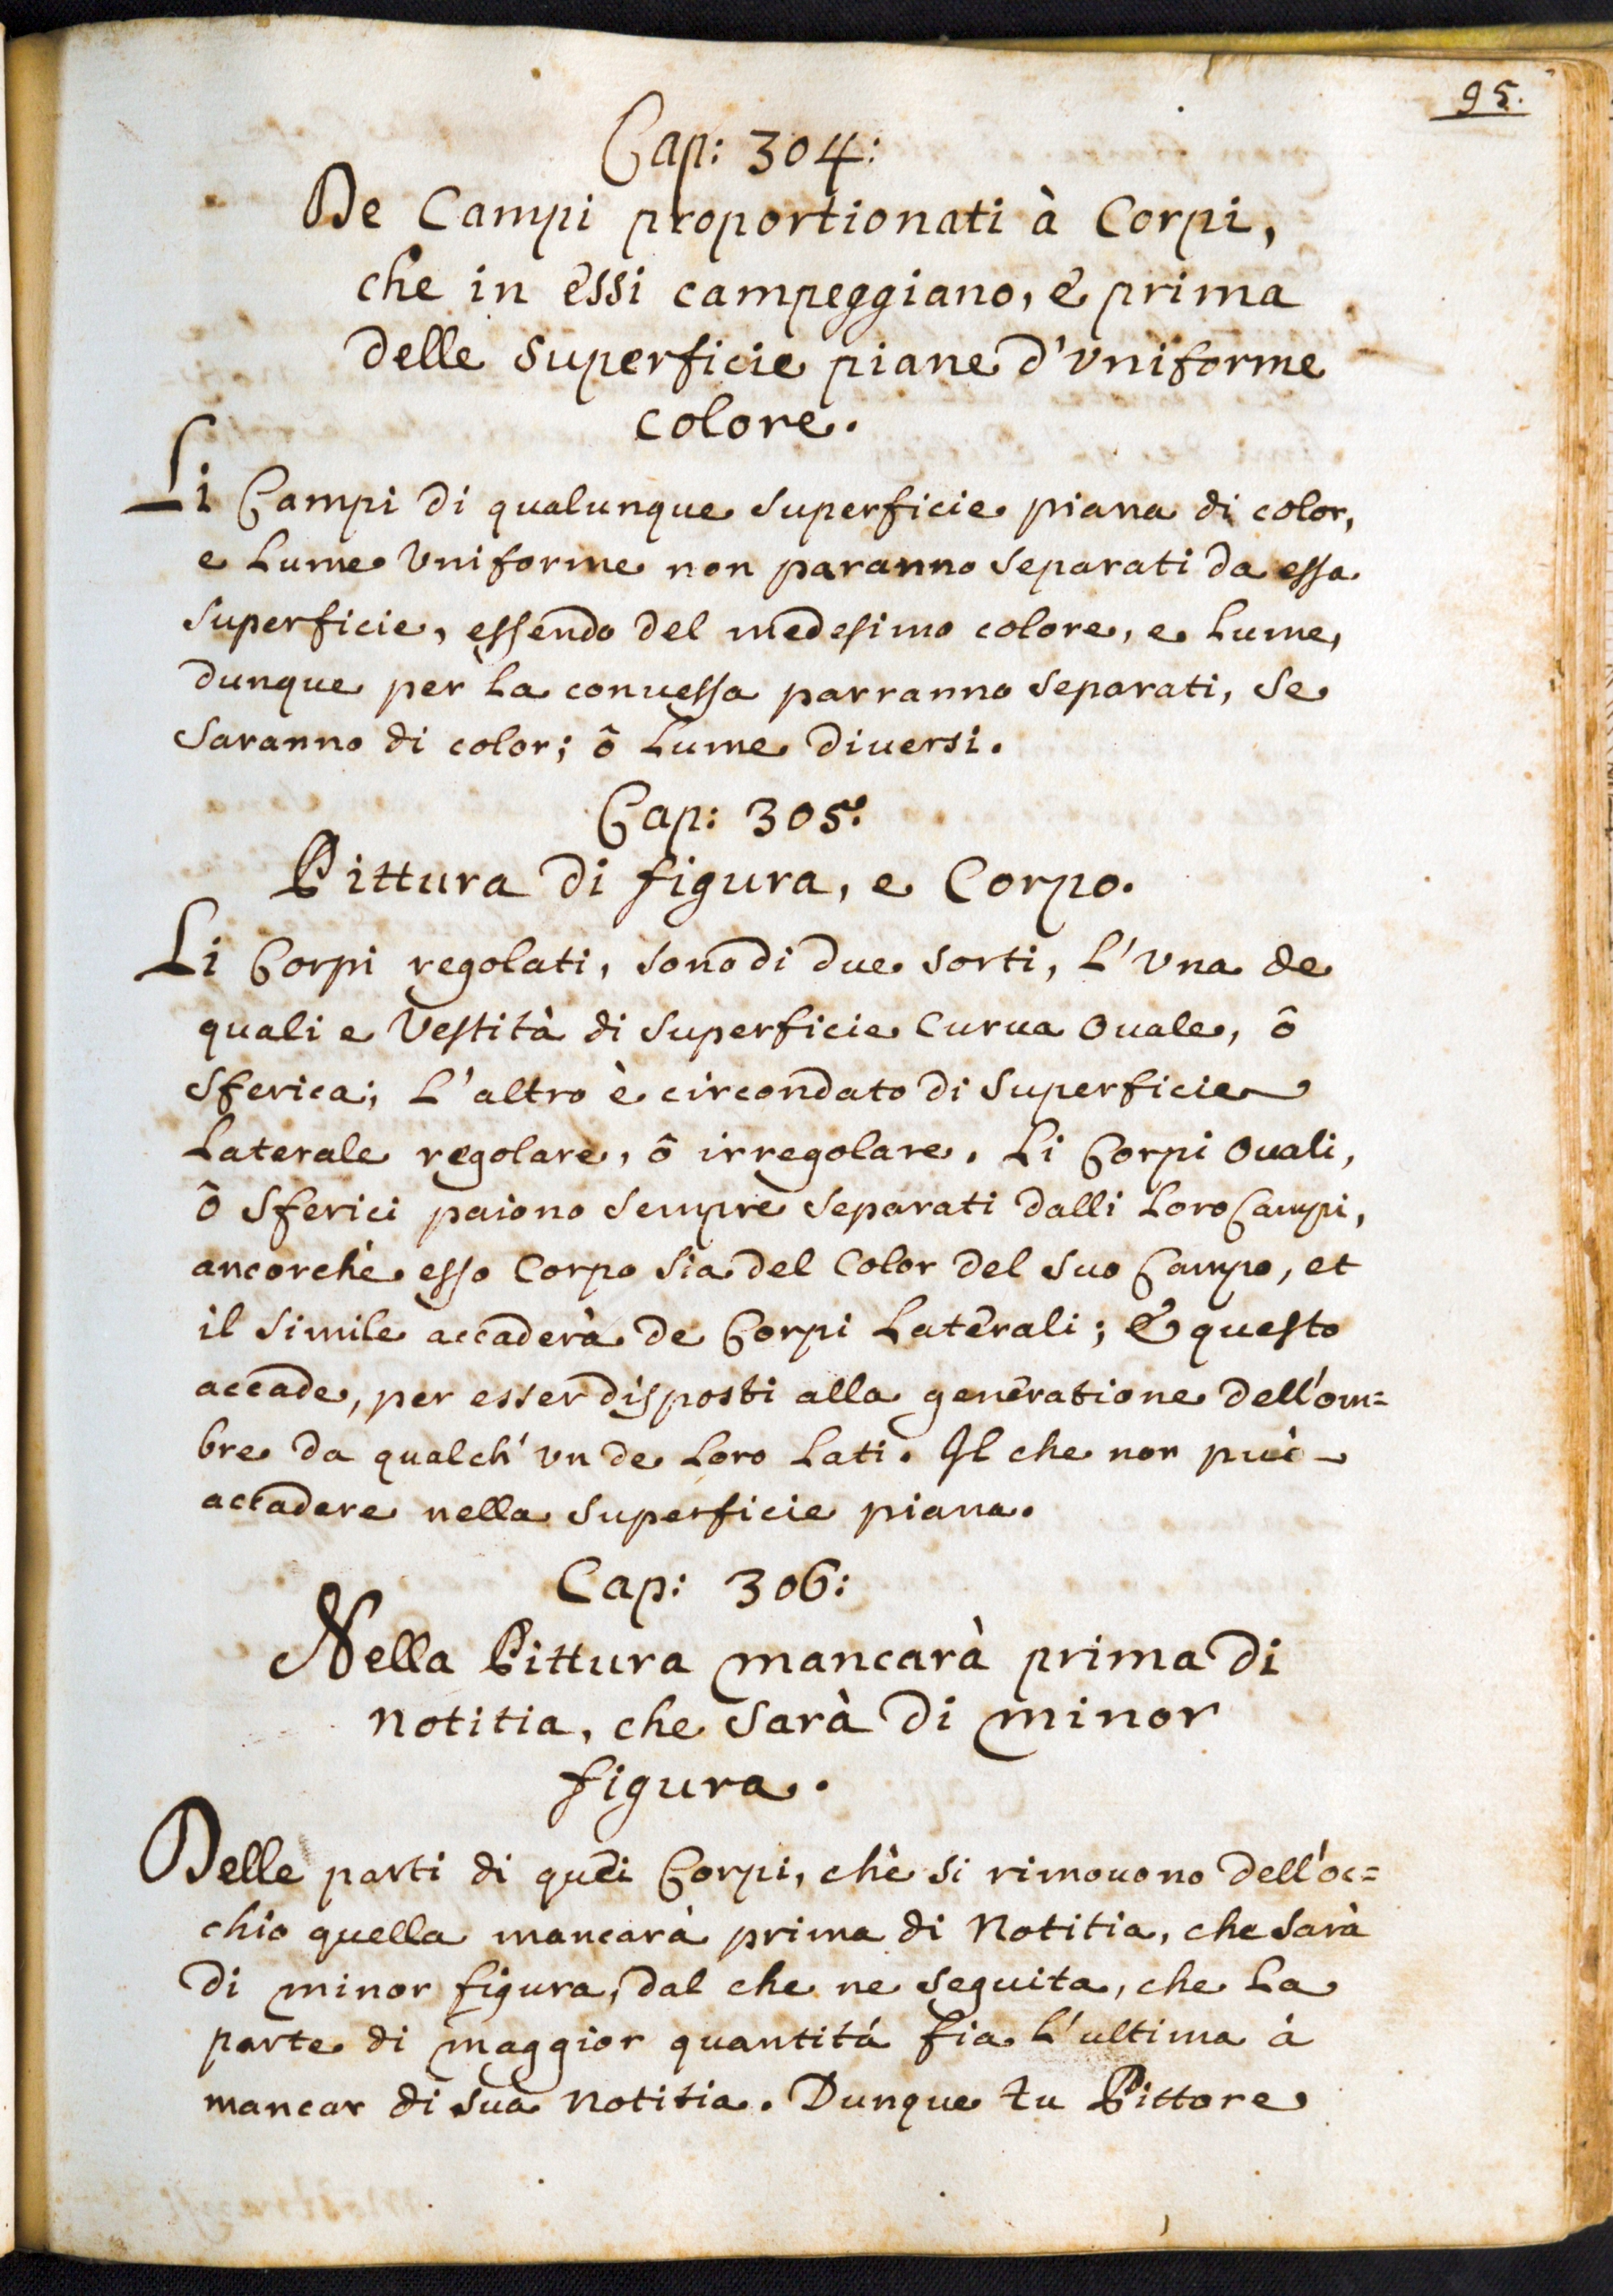 95.
Cap: 304:
De Campi proportionati à Corpi,
che in essi campeggiano, e prima
delle superficie piane d'vniforme
colore.
Li Campi di qualunque superficie piana di color,
e Lume Vniforme non paranno separati da essa
superficie, essendo del medesimo colore, e Lume,
dunque per La conuessa parranno separati, se
saranno di color; ô Lume diuersi.
Cap: 305:
Pittura di figura, e Corpo.
Li Corpi regolati, sono di due sorti, L'Vna de
quali e Vestità di superficie Curua Ouale, ô
sferica; L'altro è circondato di superficie
Laterale regolare, ô irregolare. Li Corpi Ouali,
ô sferici paiono sempre separati dalli Loro Campi,
ancorchè esso Corpo sia del Color del suo Campo, et
il simile accaderà de Corpi Laterali; & questo
accade, per esser disposti alla generatione dell'om=
bre da qualch'vn de Loro Lati. Il che non può
accadere nella superficie piana.
Cap: 306:
Nella Pittura mancarà prima di
notitia, che sarà di minor
figura.
Delle parti di quei Corpi, chè si rimouono dell'oc=
chio quella mancarà prima di Notitia, che sarà
di minor figura, dal che ne seguita, che La
parte di maggior quantitá fia L'ultima à
mancar di sua Notitia. Dunque tu Pittore